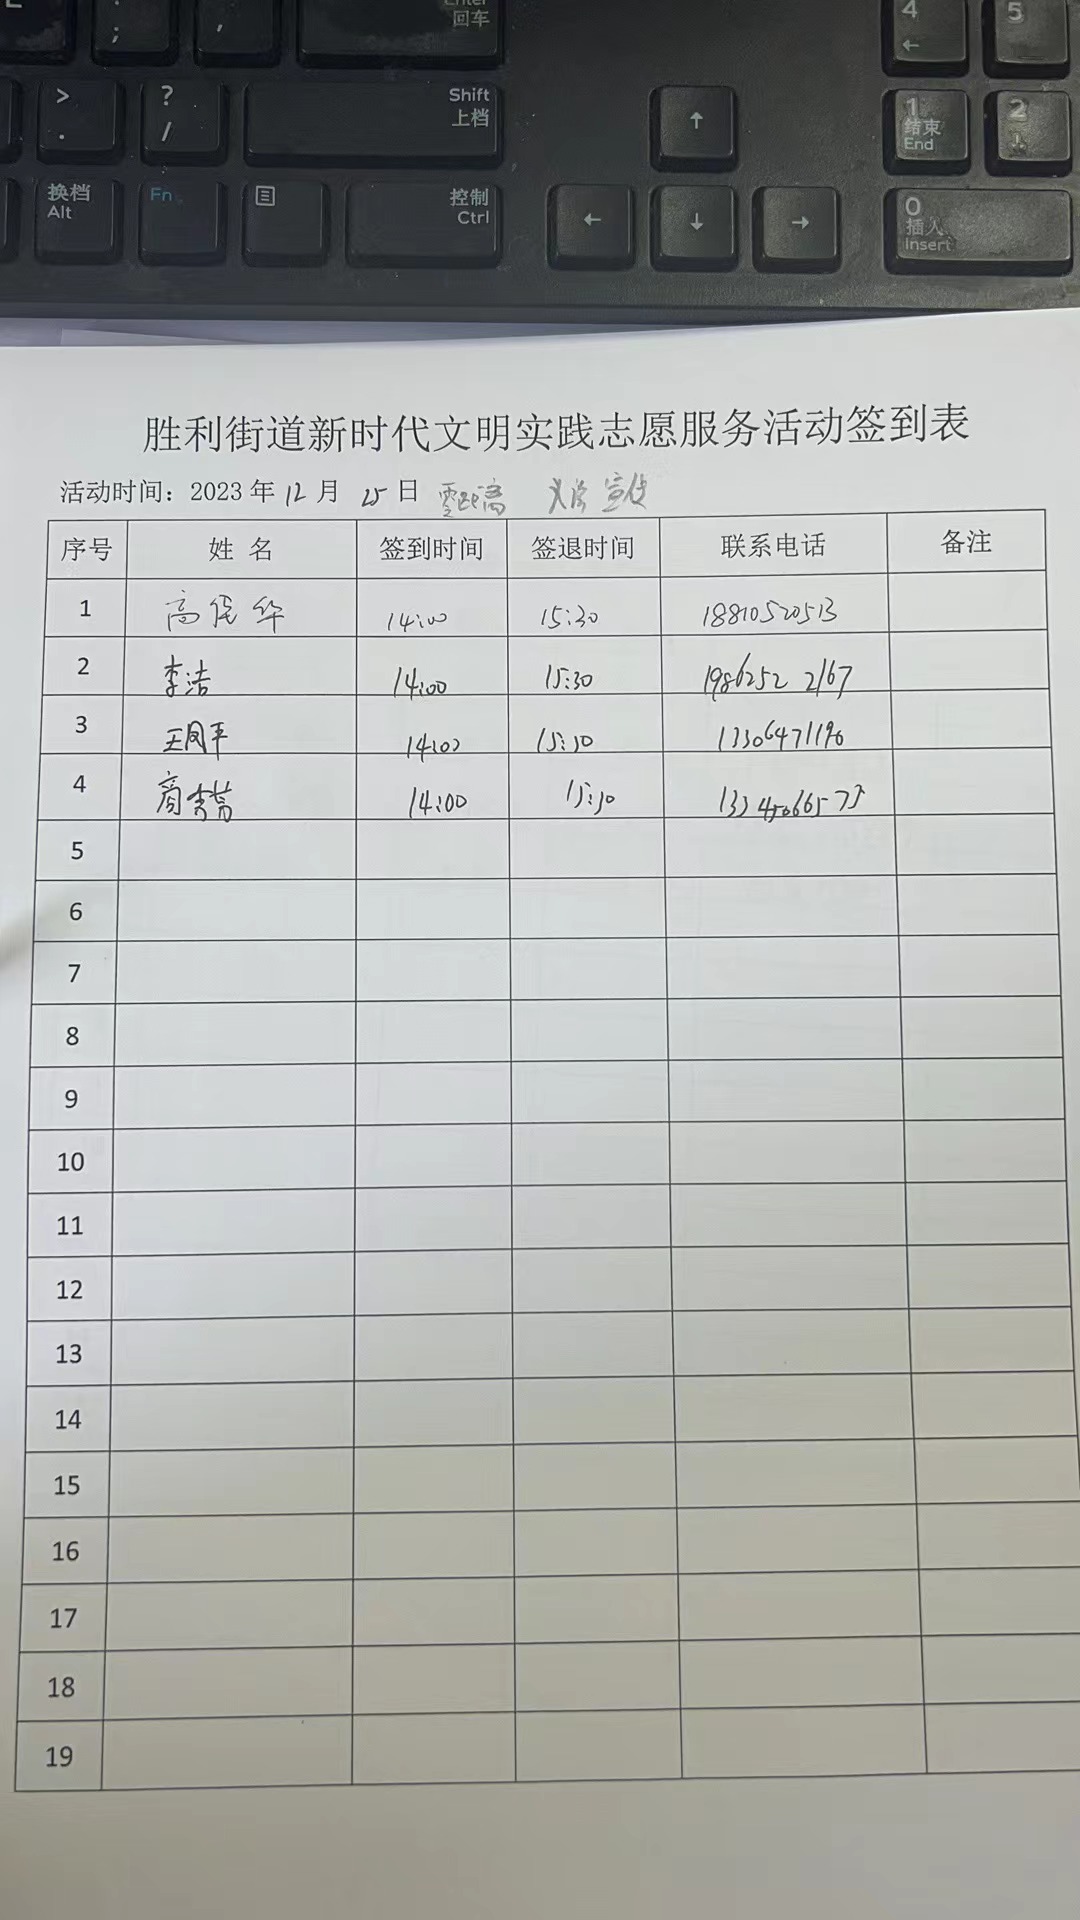 Enter
回车
4
5
;
,
←
>
.
?
/
Shift
上档
↑
1
结束
End
2
↓
换档
Alt
Fn
控制
Ctrl
←
↓
→
0
插入
Insert
胜利街道新时代文明实践志愿服务活动签到表
活动时间：2023年12月25日 零距离 宣传
序号 姓 名 签到时间 签退时间 联系电话 备注
1 高 华 14:00 15:30 18810520513
2 李洁 14:00 15:30 1986252 2167
3 王凤平 14:00 15:30 13306471196
4 商秀 14:00 15:30
5
6
7
8
9
10
11
12
13
14
15
16
17
18
19